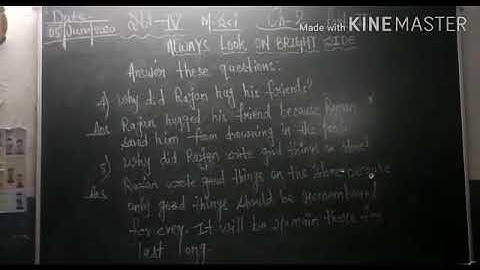 Made with KINEMASTER
Date-
05 June 2020 Std-IV M.Sci
ALWAYS LOOK ON BRIGHT SIDE
Answer these questions:
4) Why did Rajan hug his friends?
Ans Rajan hugged his friend because Raman
saved him from drowning in the
5) Why did Rajan wrote good things on stone?
Ans Rajan wrote good things on the stone because
only good things should be remembered
for every. It will be remain there for
last long.